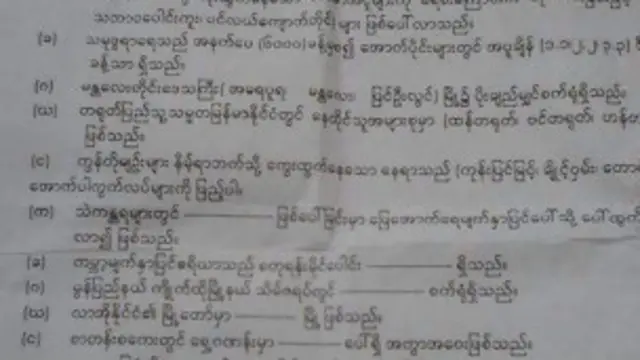 သဘာဝပေါင်းကူး၊ ပင်လယ်ကျောက်တိုင်များ ဖြစ်ပေါ်လာသည်။
(ခ) သမုဒ္ဒရာရေသည် အနက်ပေ (၆၀၀၀) ခန့်မှစ၍ အောက်ပိုင်းများတွင် အပူချိန် (၁.၁၊ ၂.၂၊ ၃.၃)
ခန့်သာ ရှိသည်။
(ဂ) မန္တလေးတိုင်းဒေသကြီး (အမရပူရ၊ မန္တလေး၊ ပြင်ဦးလွင်) မြို့၌ ပိုးချည်မျှင်စက်ရုံရှိသည်။
(ဃ) တရုတ်ပြည်သူ့သမ္မတမြန်မာနိုင်ငံတွင် နေထိုင်သူအများစုမှာ (ထန်တရုတ်၊ ဗင်တရုတ်၊
ဖြစ်သည်။
(င) ကွန်တိုမျဉ်းများ နိမ့်ရာဘက်သို့ ကွေးထွက်နေသော နေရာသည် (ကုန်းပြင်မြင့်၊ ချိုင့်ဝှမ်း၊
အောက်ပါကွက်လပ်များကို ဖြည့်ပါ။
(က) သဲကန္တရများတွင် ———— ဖြစ်ပေါ်ခြင်းမှာ မြေအောက်ရေမျက်နှာပြင်ပေါ်သို့ ပေါ်ထွက်
လာ၍ ဖြစ်သည်။
(ခ) ကမ္ဘာ့မျက်နှာပြင်ဧရိယာသည် စတုရန်းမိုင်ပေါင်း ———— ရှိသည်။
(ဂ) မွန်ပြည်နယ် ကျိုက်ထိုမြို့နယ် သိမ်ဇရပ်တွင် ———— စက်ရုံရှိသည်။
(ဃ) လာအိုနိုင်ငံ၏ မြို့တော်မှာ ———— မြို့ ဖြစ်သည်။
(င) စာတန်းစကေးတွင် ရှေ့ဂဏန်းမှာ ———— ပေါ်ရှိ အကွာအဝေးဖြစ်သည်။